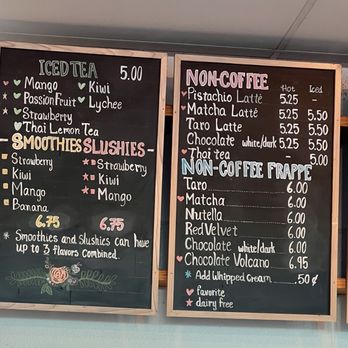 ICED TEA 5.00
Mango Kiwi
Passion Fruit Lychee
Strawberry
Thai Lemon Tea
SMOOTHIES SLUSHIES
Strawberry Strawberry
Kiwi Kiwi
Mango Mango
Banana
6.75 6.75
* Smoothies and Slushies can have
up to 3 flavors combined.
NON-COFFEE Hot Iced
Pistachio Latte 5.25 -
Matcha Latte 5.25 5.50
Taro Latte 5.25 5.50
Chocolate white/dark 5.25 5.50
Thai tea - 5.00
NON-COFFEE FRAPPE
Taro 6.00
Matcha 6.00
Nutella 6.00
Red Velvet 6.00
Chocolate white/dark 6.00
Chocolate Volcano 6.95
* Add Whipped Cream .50¢
♥ favorite
★ dairy free